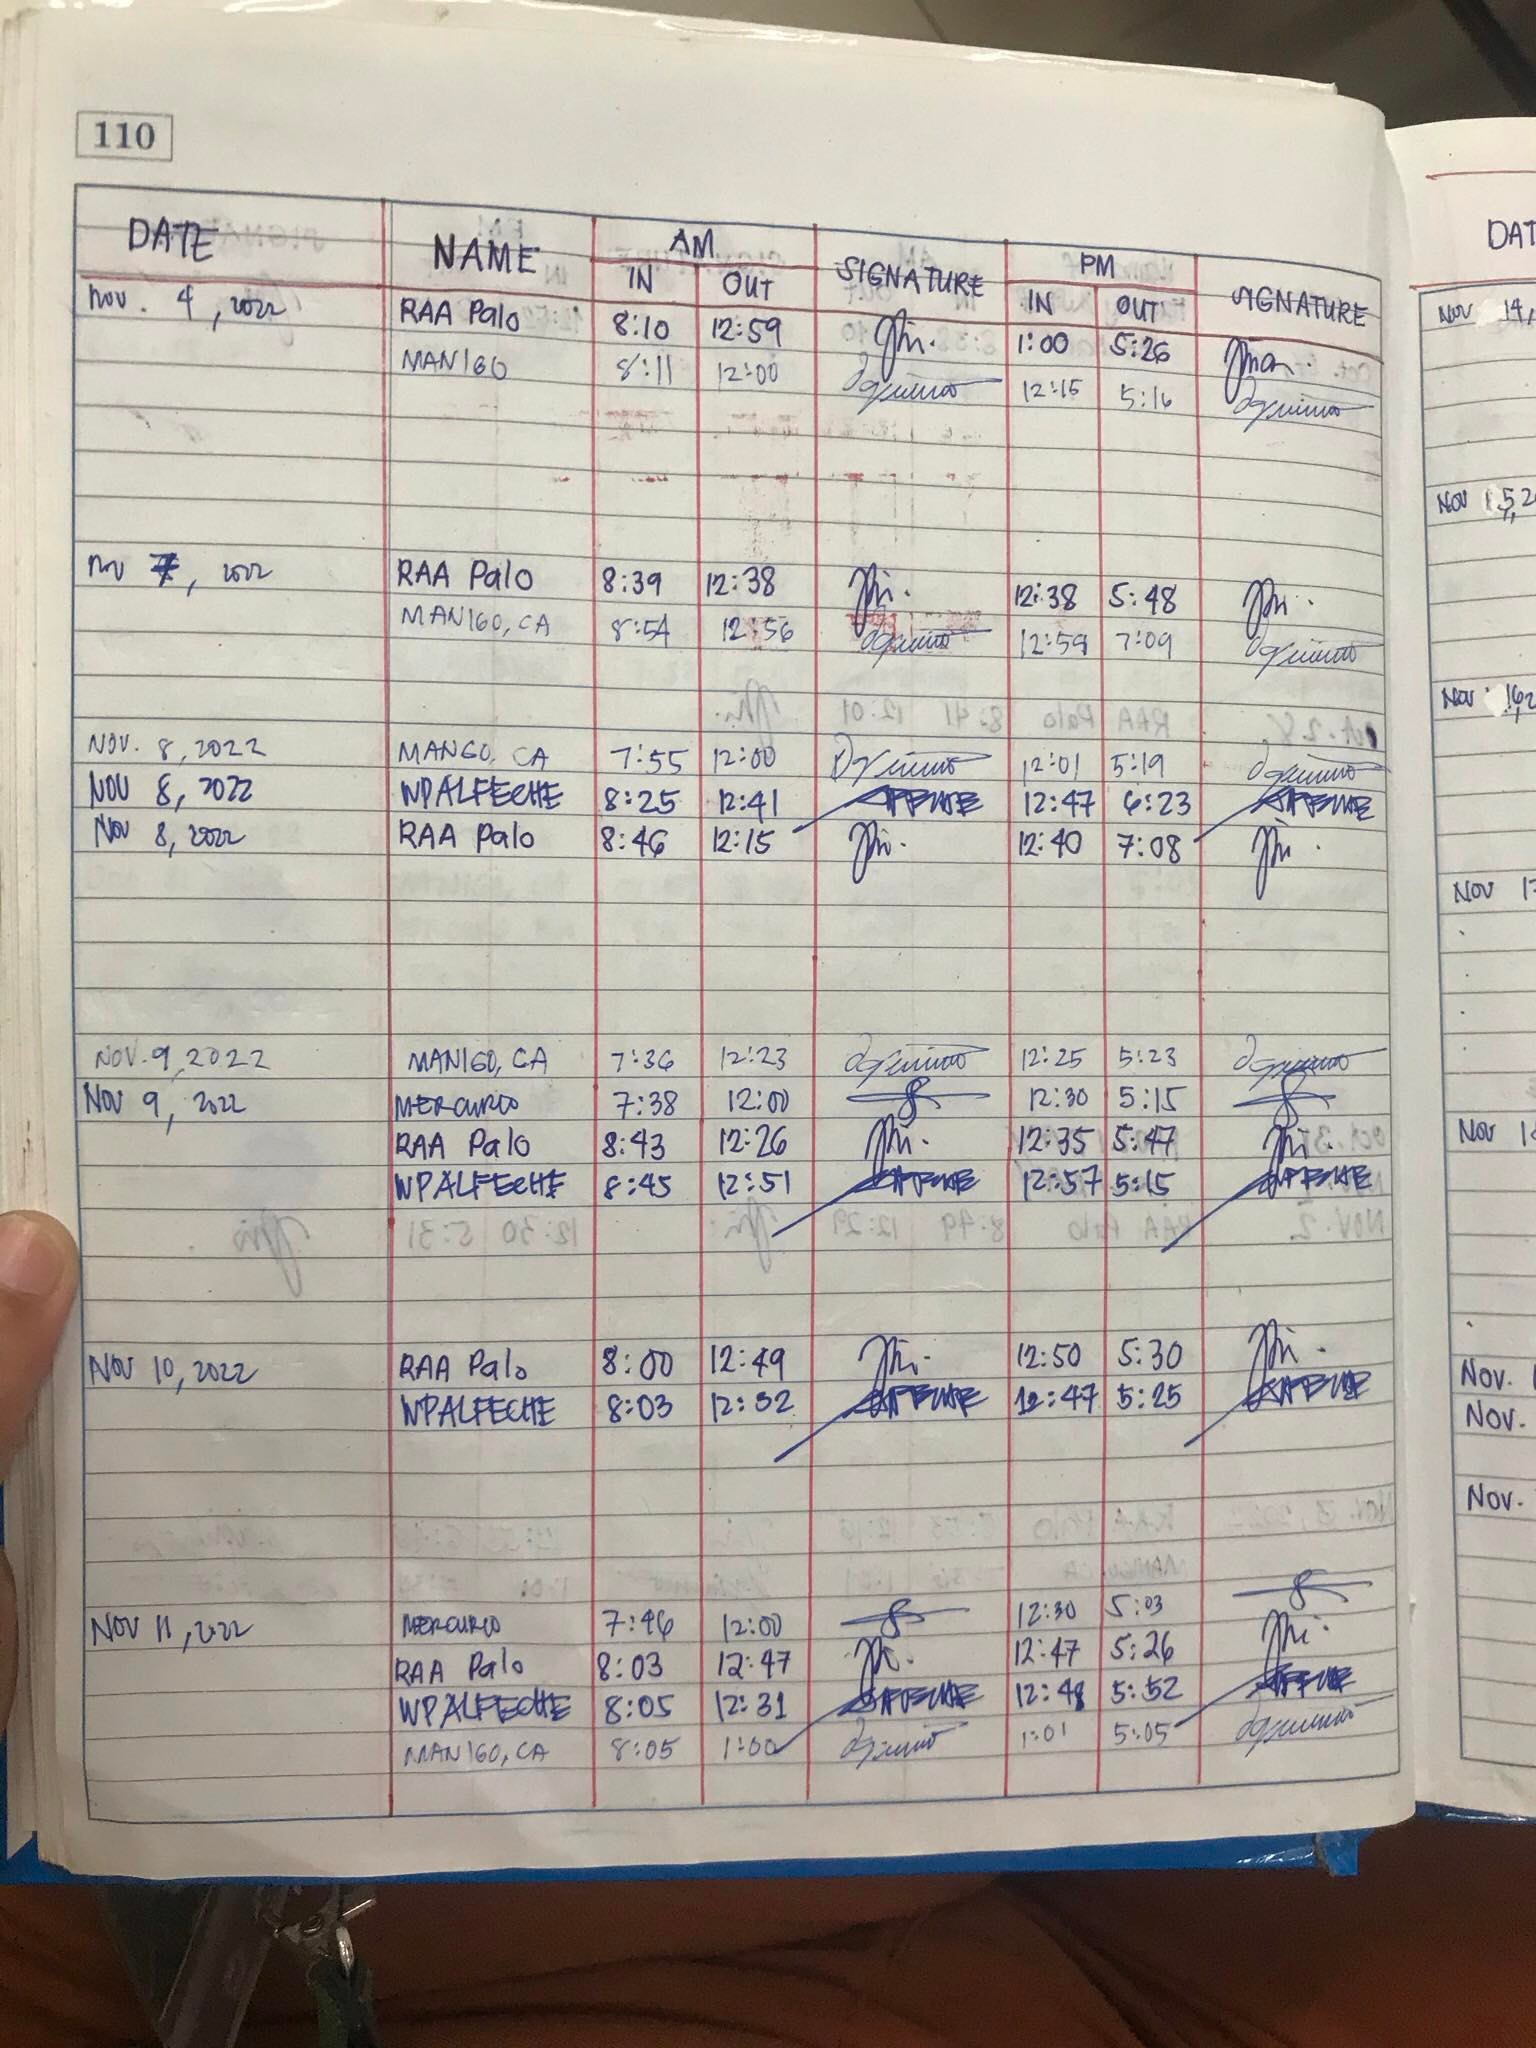 110
DATE NAME AM SIGNATURE PM SIGNATURE
IN OUT IN OUT
Nov. 4, 2022 RAA Palo 8:10 12:59 1:00 5:26
MANIGO 8:11 12:00 12:15 5:16
Nov 7, 2022 RAA Palo 8:39 12:38 12:38 5:48
MANIGO, CA 8:54 12:56 12:59 7:09
NOV. 8, 2022 MANGO, CA 7:55 12:00 12:01 5:19
NOV 8, 2022 WPALFECHE 8:25 12:41 12:47 6:23
Nov 8, 2022 RAA Palo 8:46 12:15 12:40 7:08
NOV. 9, 2022 MANIGO, CA 7:36 12:23 12:25 5:23
Nov 9, 2022 MERCURIO 7:38 12:00 12:30 5:15
RAA Palo 8:43 12:26 12:35 5:47
WPALFECHE 8:45 12:51 12:57 5:15
Nov 10, 2022 RAA Palo 8:00 12:49 12:50 5:30
WPALFECHE 8:03 12:32 12:47 5:25
Nov 11, 2022 MERCURIO 7:46 12:00 12:30 5:03
RAA Palo 8:03 12:47 12:47 5:26
WPALFECHE 8:05 12:31 12:48 5:52
MANIGO, CA 8:05 1:00 1:01 5:05
DAT
Nov 14,
Nov 15, 2
Nov 16, 2
Nov 17
Nov
Nov.
Nov.
Nov.